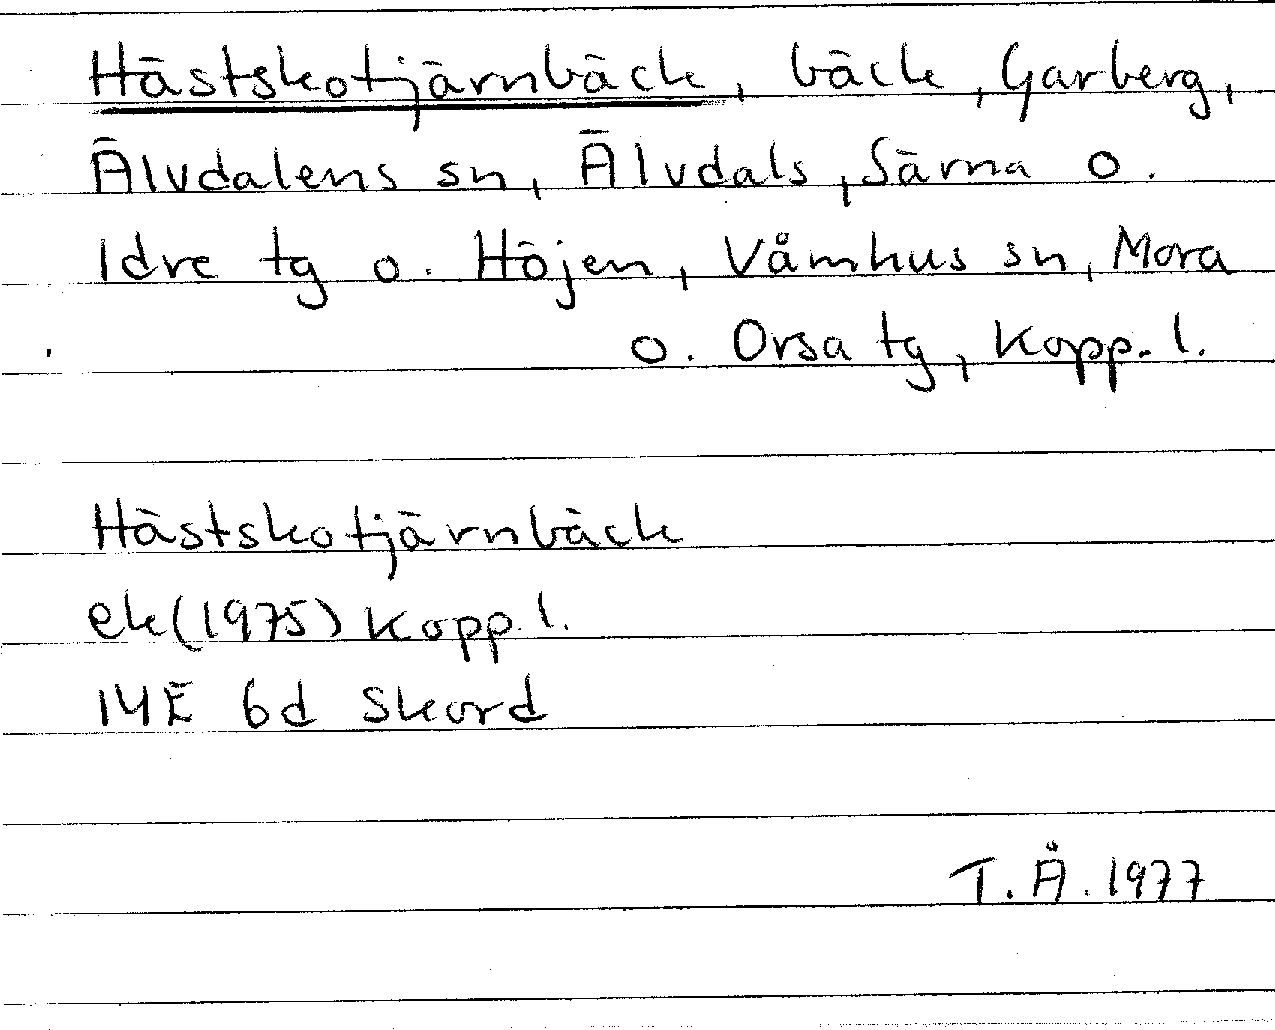 Hästskotjärnbäck, bäck, Garberg,
Älvdalens sn, Älvdals, Särna o.
Idre tg o. Höjen, Våmhus sn, Mora
o. Orsa tg, Kopp. l.
Hästskotjärnbäck
ek (1975) Kopp. l.
14E 6d Skord
T. Å. 1977